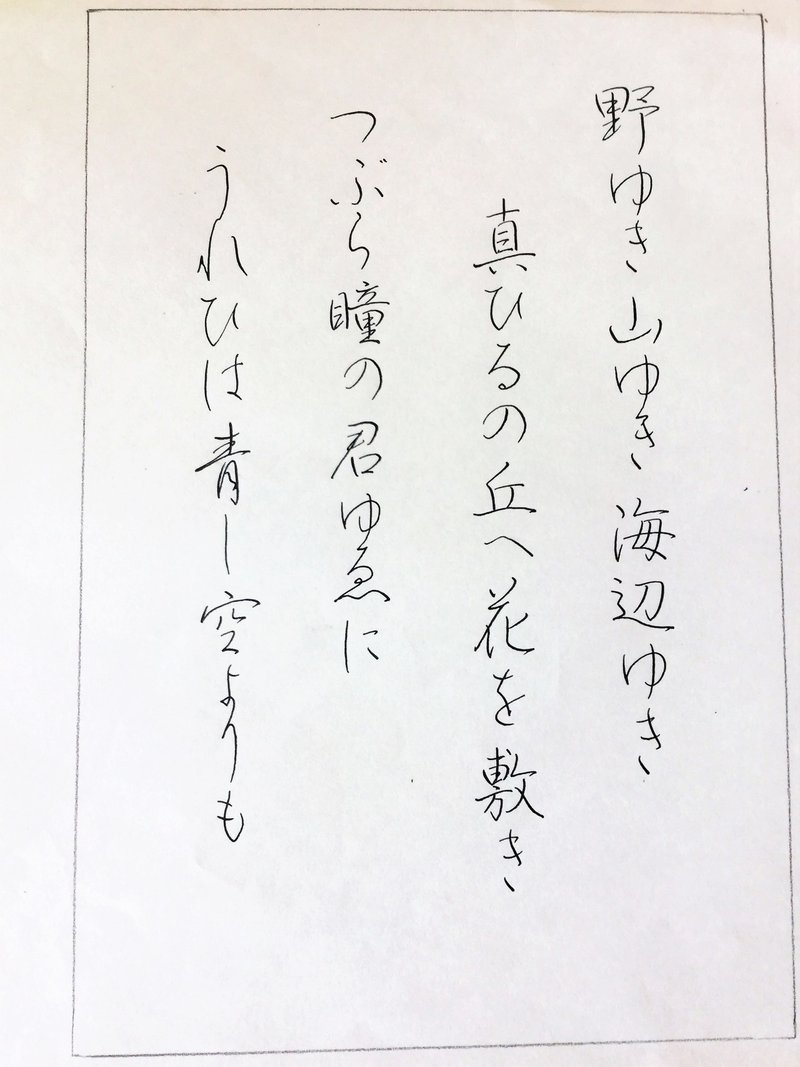 野ゆき山ゆき海辺ゆき
真ひるの丘へ花を敷き
つぶら瞳の君ゆゑに
うれひは青し空よりも